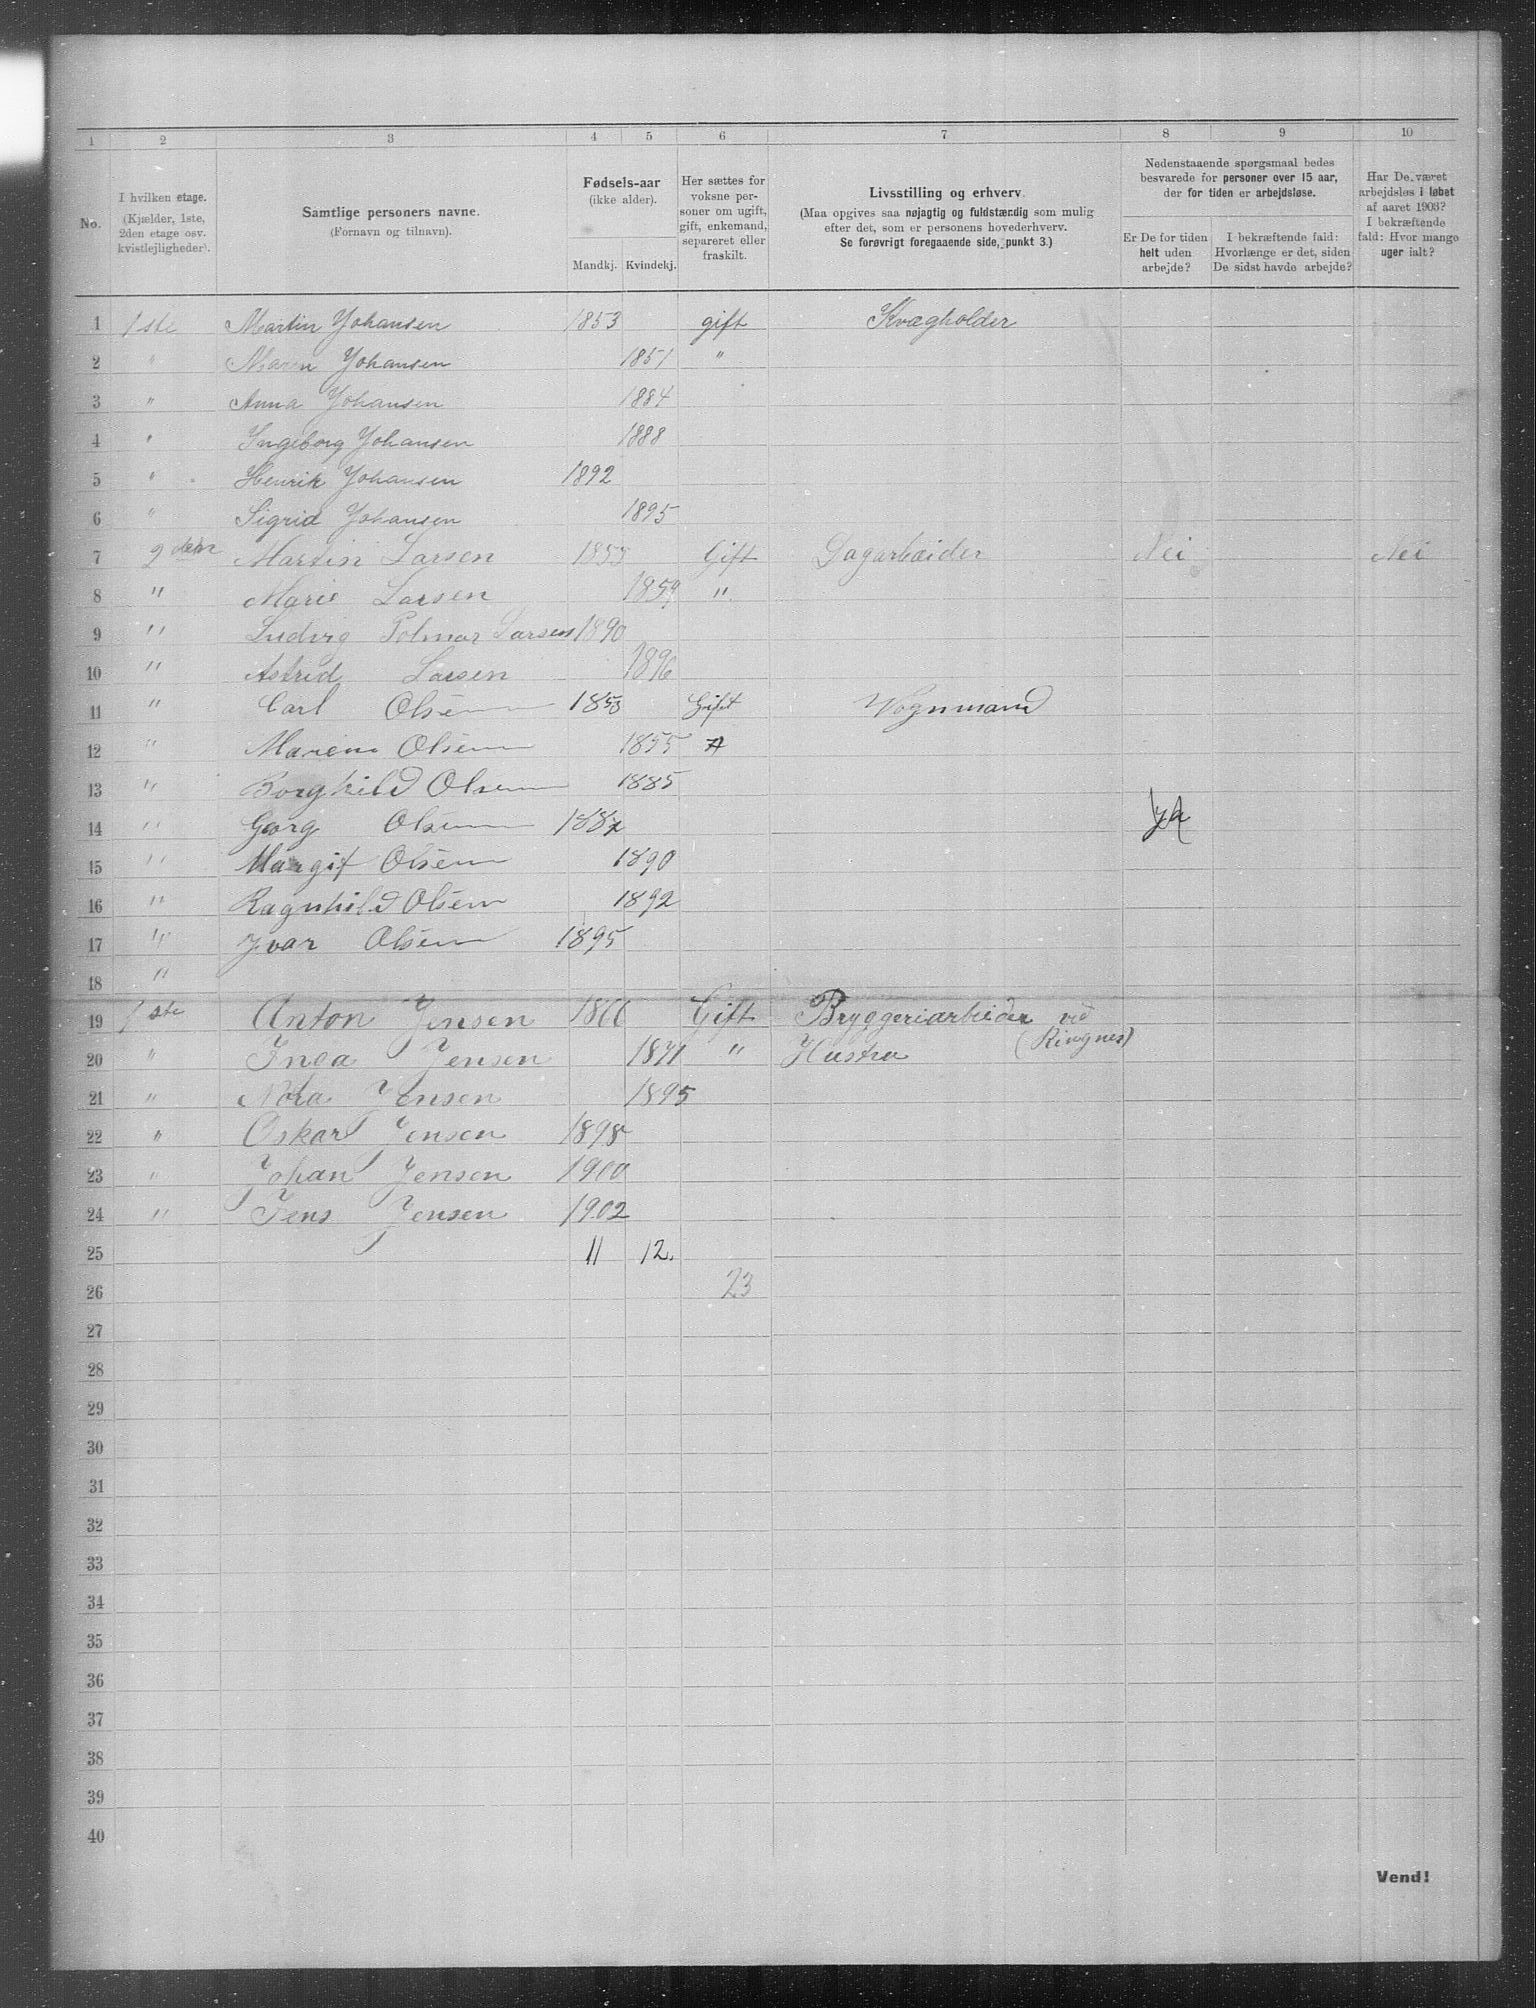 1 2 3 4 5 6 7 8 9 10
No.
I hvilken etage.
(Kjælder, 1ste,
2den etage osv.
kvistlejligheder).
Samtlige personers navne.
(Fornavn og tilnavn).
Fødsels-aar
(ikke alder).
Mandkj. Kvindekj.
Her sættes for
voksne per-
soner om ugift,
gift, enkemand,
separeret eller
fraskilt.
Livsstilling og erhverv.
(Maa opgives saa nøjagtig og fuldstændig som mulig
efter det, som er personens hovederhverv.
Se forøvrigt foregaaende side, punkt 3.)
Nedenstaaende spørgsmaal bedes
besvarede for personer over 15 aar,
der for tiden er arbejdsløse.
Er De for tiden
helt uden
arbejde?
I bekræftende fald:
Hvorlænge er det, siden
De sidst havde arbejde?
Har De været
arbejdsløs i løbet
af aaret 1903?
I bekræftende
fald: Hvor mange
uger ialt?
1 1ste Martin Johansen 1853 gift Kvægholder
2 " Maren Johansen 1851 "
3 " Anna Johansen 1884
4 " Ingeborg Johansen 1888
5 " Henrik Johansen 1892
6 " Sigrid Johansen 1895
7 2den Martin Larsen 1855 Gift Dagarbeider Nei Nei
8 " Marie Larsen 1859 "
9 " Ludvig Larsen 1890
10 " Astrid Larsen 1896
11 " Carl Olsen 1853 Gift Vognmand
12 " Olsen 1855
13 " Borghild Olsen 1885
14 " Georg Olsen Ja
15 " Margit Olsen 1890
16 " Ragnhild Olsen 1892
17 " Ivar Olsen 1895
18 "
19 1ste Anton Jensen 1866 Gift Bryggeriarbeider ved
(Ringnes)
20 " Inga Jensen 1871 " Hustru
21 " Nora Jensen 1895
22 " Oskar Jensen 1898
23 " Johan Jensen 1900
24 " Jens Jensen 1902
25 11 12.
26 23
27
28
29
30
31
32
33
34
35
36
37
38
39
40
Vend!